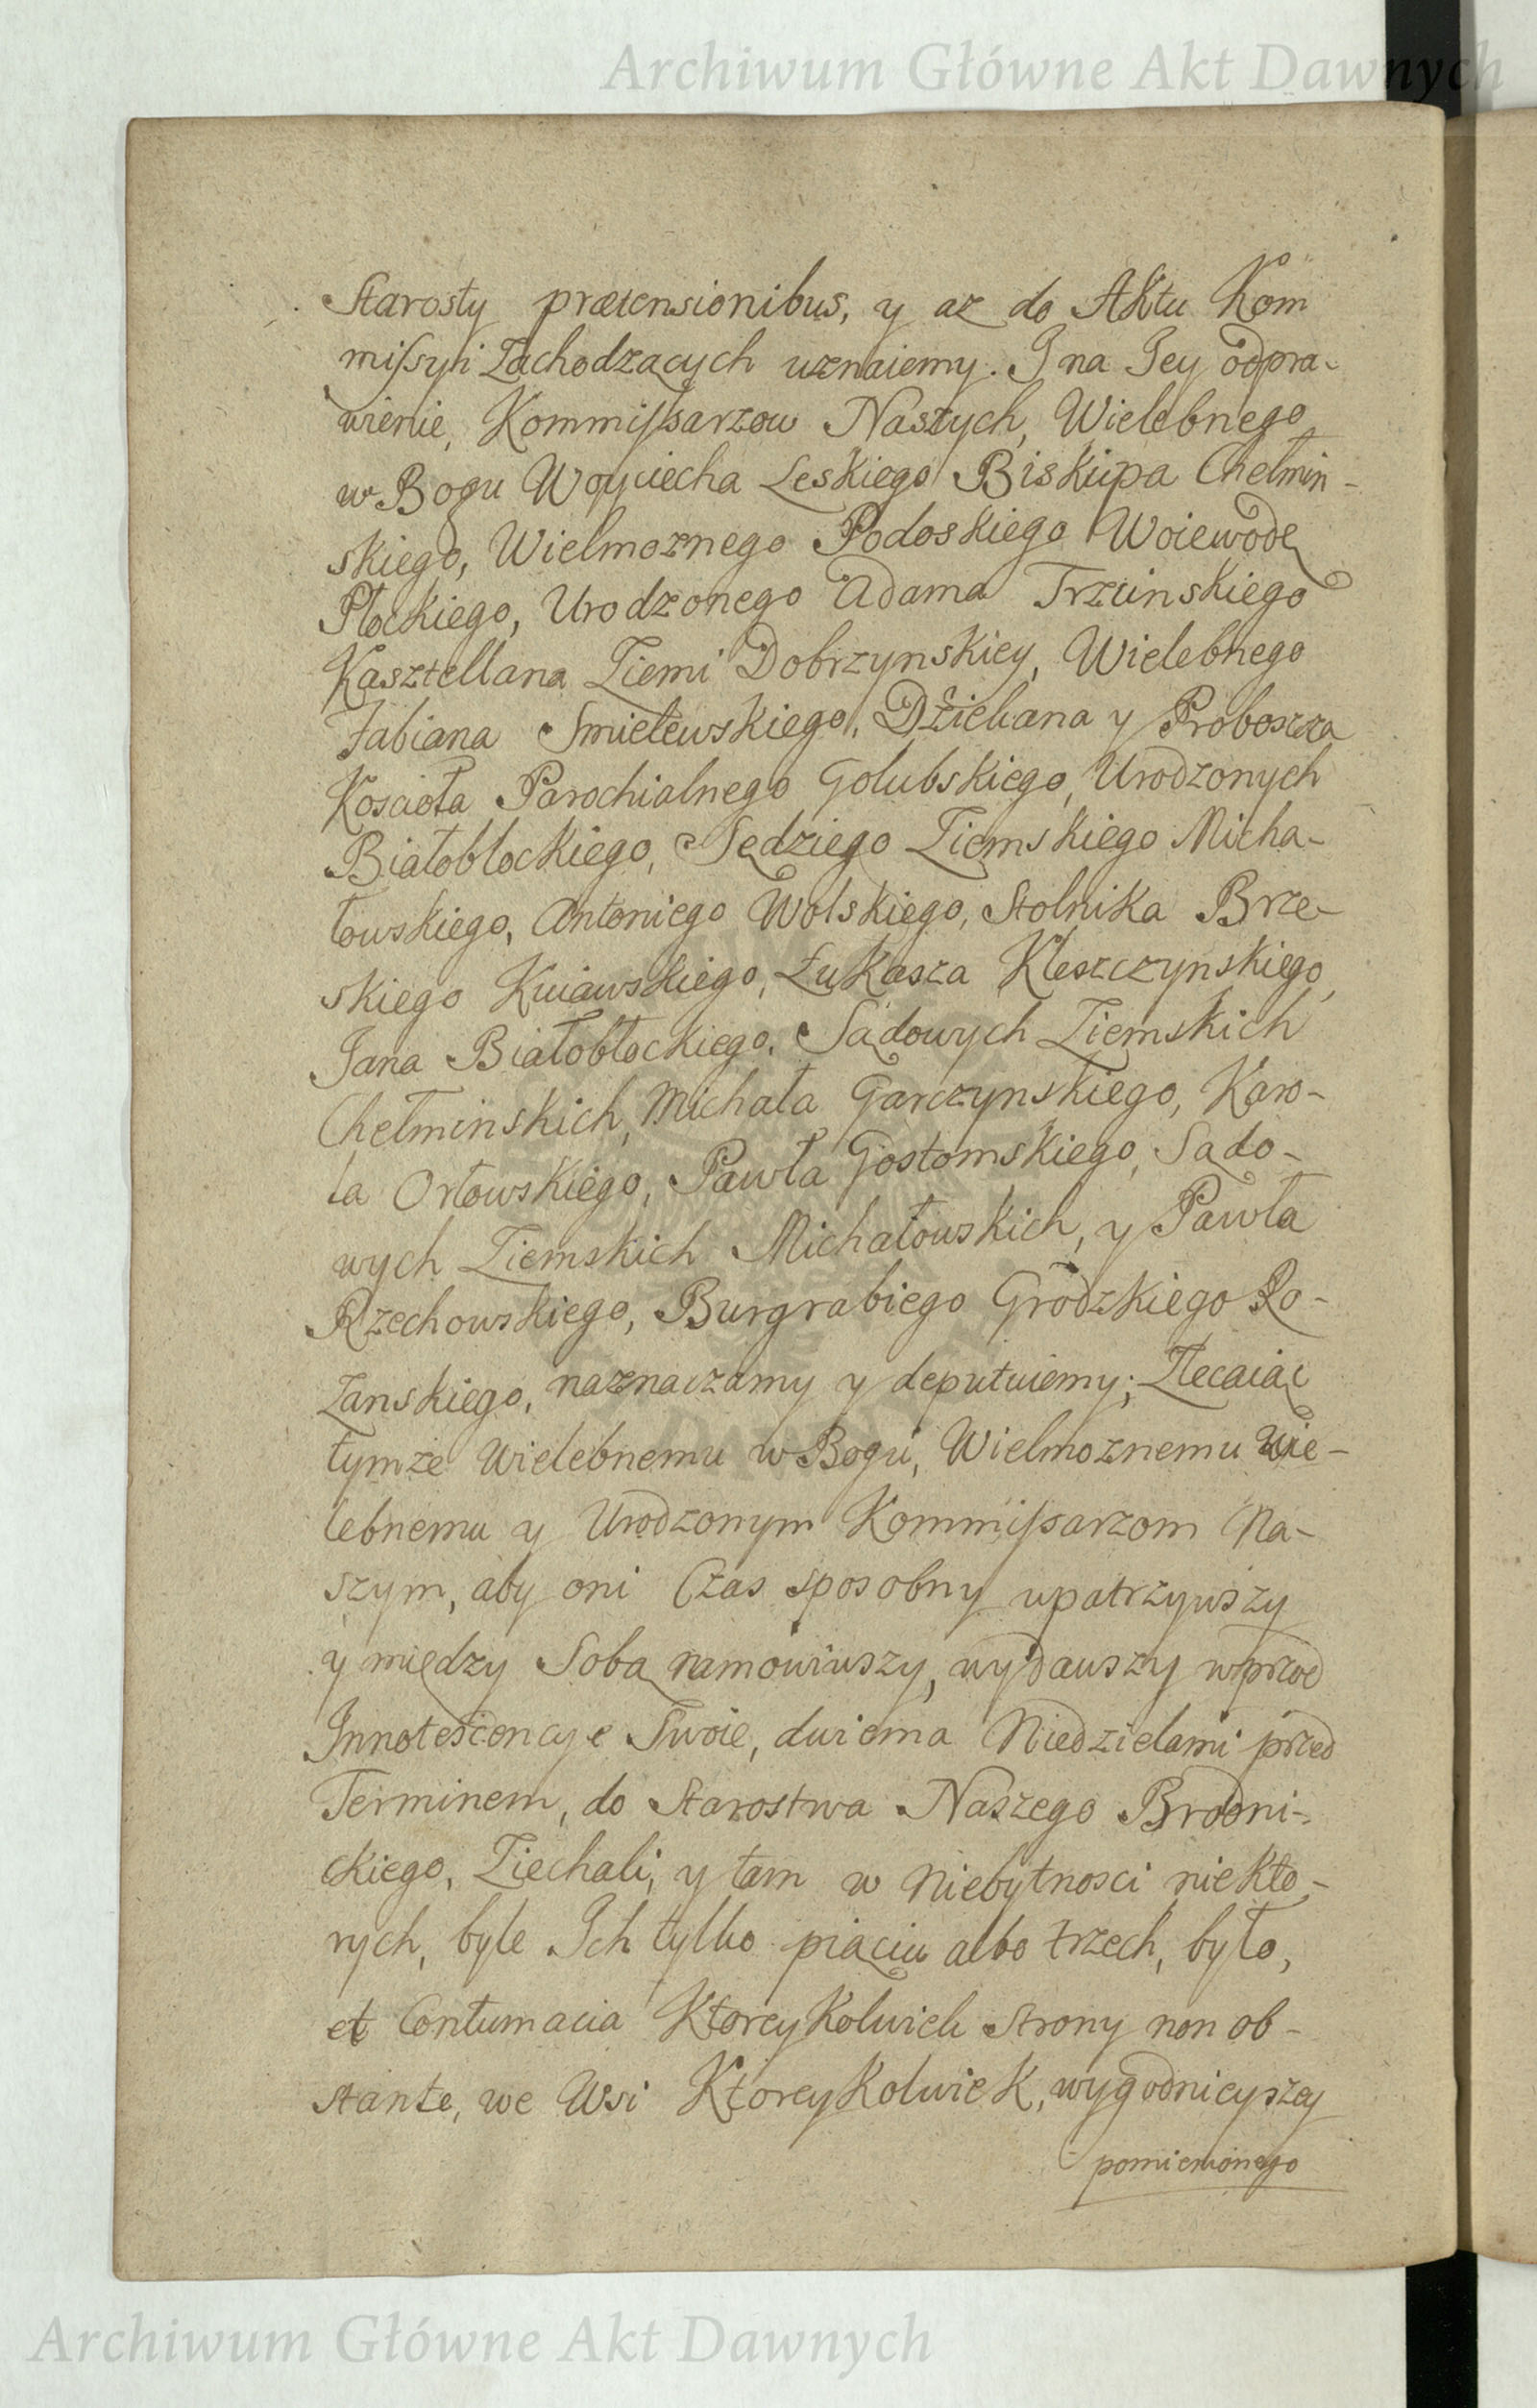 Archiwum Główne Akt Dawnych
Starosty prætensionibus, y az do Aktu Kom
missyi Zachodzących uznaiemy. I na Jey odpra-
wienie, Kommissarzow Naszych, Wielebnego
w Bogu Woyciecha Leskiego Biskupa Chełmin-
skiego, Wielmoznego Podoskiego Woiewodę
Płockiego, Urodzonego Adama Trzcinskiego
Kasztellana Ziemi Dobrzynskiey, Wielebnego
Fabiana Smielewskiego, Dziekana y Proboszcza
Koscioła Parochialnego Golubskiego, Urodzonych
Białobłockiego, Sędziego Ziemskiego Micha-
łowskiego, Antoniego Wolskiego, Stolnika Brze-
skiego Kuiawskiego, Łukasza Kleszczynskiego,
Jana Białobłockiego, Sądowych Ziemskich
Chełminskich, Michała Garczynskiego, Karo-
la Orłowskiego, Pawła Gostomskiego, Sądo-
wych Ziemskich Michałowskich, y Pawła
Rzechowskiego, Burgrabiego Grodzkiego Ro-
Zanskiego, naznaczamy y deputuiemy; Zlecaiąc
tymze Wielebnemu w Bogu, Wielmoznemu Wie-
lebnemu y Urodzonym Kommissarzom Na-
szym, aby oni Czas sposobny upatrzywszy
y między Sobą namowiwszy, wydawszy wprzod
Innotescencye Swoie, dwiema Niedzielami przed
Terminem, do Starostwa Naszego Brodni-
ckiego, Ziechali, y tam w Niebytnosci niekto-
rych, byle Ich tylko piąciu albo trzech, było,
et Contumacia Ktoreykolwiek Strony non ob-
stante, we Wsi Ktoreykolwiek, wygodnieyszey
pomienionego
Archiwum Główne Akt Dawnych